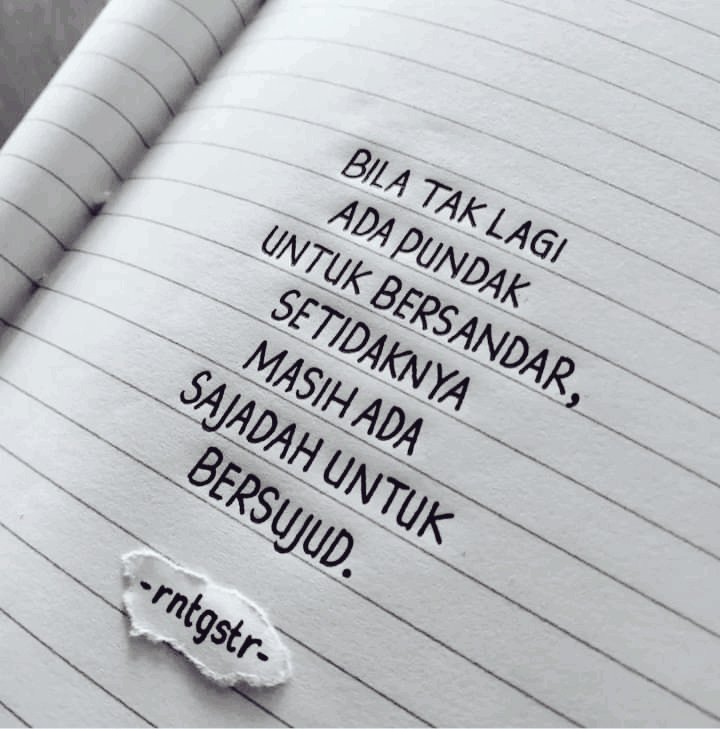 BILA TAK LAGI
ADA PUNDAK
UNTUK BERSANDAR,
SETIDAKNYA
MASIH ADA
SAJADAH UNTUK
BERSUJUD.
-rntgstr-